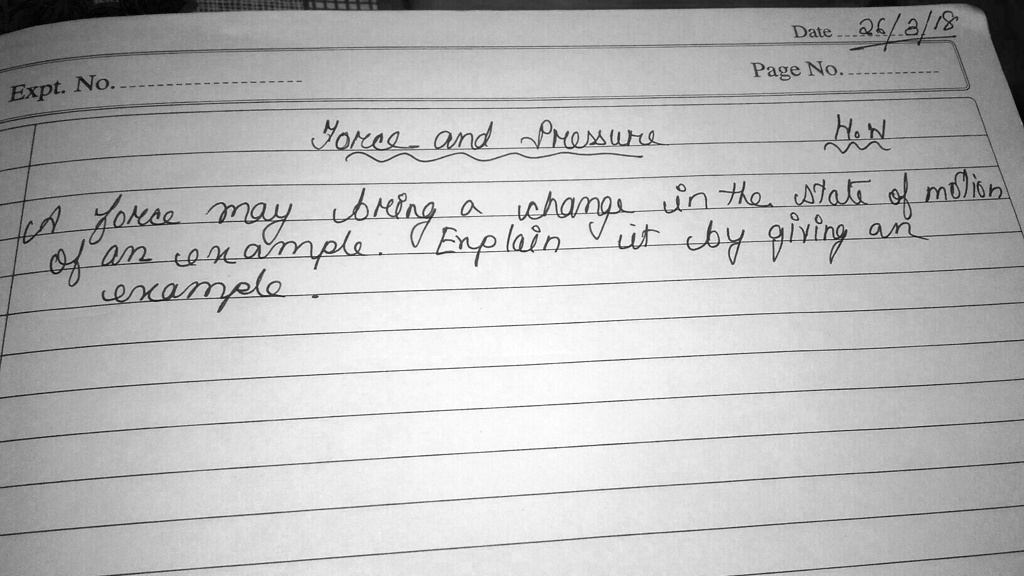 Date 26/3/18
Expt. No.
Page No.
Force and Pressure H.W
A force may bring a change in the state of motion
of an example. Explain it by giving an
example.